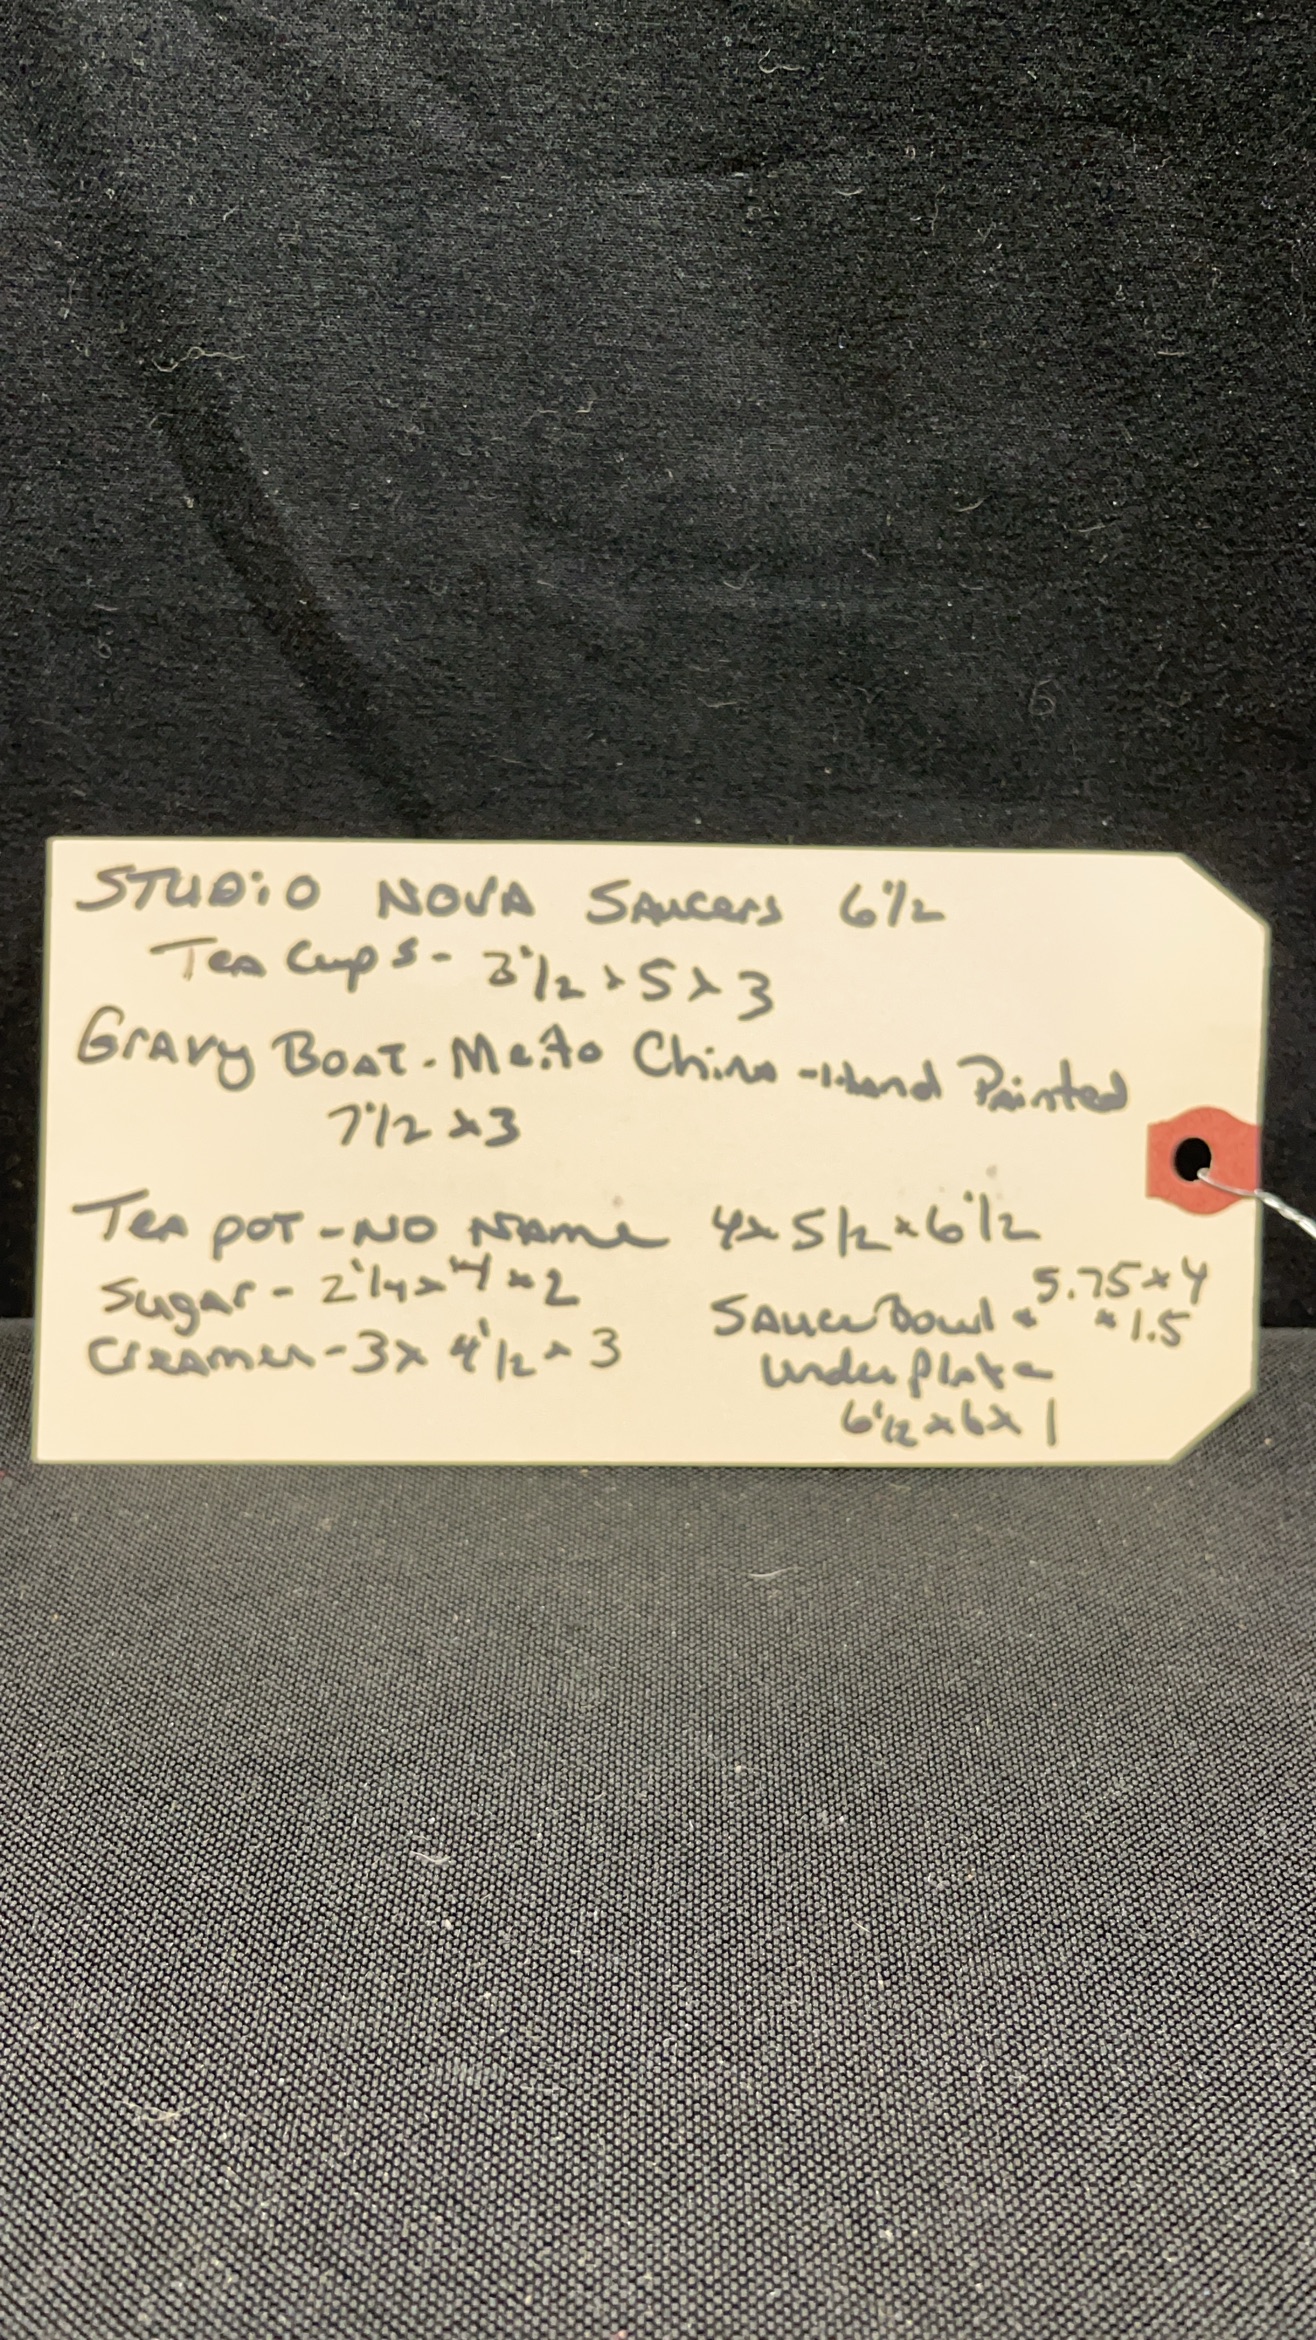 STUDIO NOVA SAUCERS 6 1/2
Tea Cups - 3 1/2 x 5 x 3
GRAVY BOAT - Meito China - Hand Painted
7 1/2 x 3
Tea POT - NO NAME 4 x 5 1/2 x 6 1/2
Sugar - 2 1/4 x 4 x 2
Creamer - 3 x 4 1/2 x 3
Sauce Bowl - 5.75 x 4
x 1.5
Under plate
6 1/2 x 6 x 1